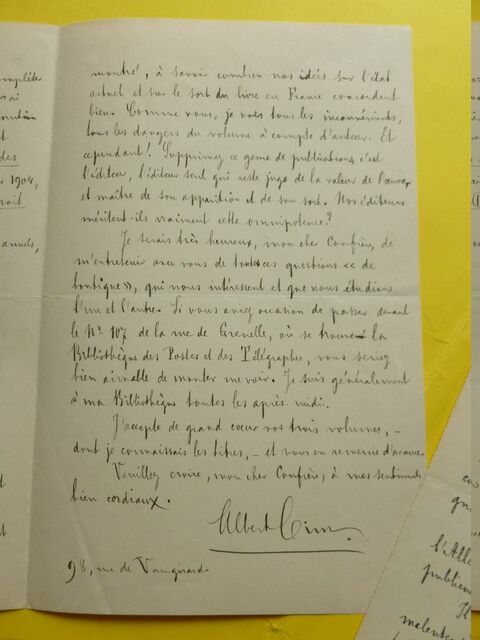 montré, à savoir combien nos idées sur l'état
actuel et sur le sort du livre en France concordent
bien. Comme vous, je vois tous les inconvénients,
tous les dangers du volume à compte d'auteur. Et
cependant! Supprimez ce genre de publications, c'est
l'éditeur, l'éditeur seul qui reste juge de la valeur de l'œuvre,
et maître de son apparition et de son sort. Nos éditeurs
méritent-ils vraiment cette omnipotence?
Je serais très heureux, mon cher Confrère, de
m'entretenir avec vous de toutes ces questions « de
boutique », qui nous intéressent et que nous étudions
l'un et l'autre. Si vous aviez occasion de passer devant
le N° 107 de la rue de Grenelle, où se trouve la
Bibliothèque des Postes et des Télégraphes, vous seriez
bien aimable de monter me voir. Je suis généralement
à ma Bibliothèque toutes les après-midi.
J'accepte de grand cœur vos trois volumes, –
dont je connaissais les titres, – et vous en remercie d'avance.
Veuillez croire, mon cher Confrère, à mes sentiments
bien cordiaux.
Albert Cim
98, rue de Vaugirard.
1904,
l'Alle
publien
Il
malenten